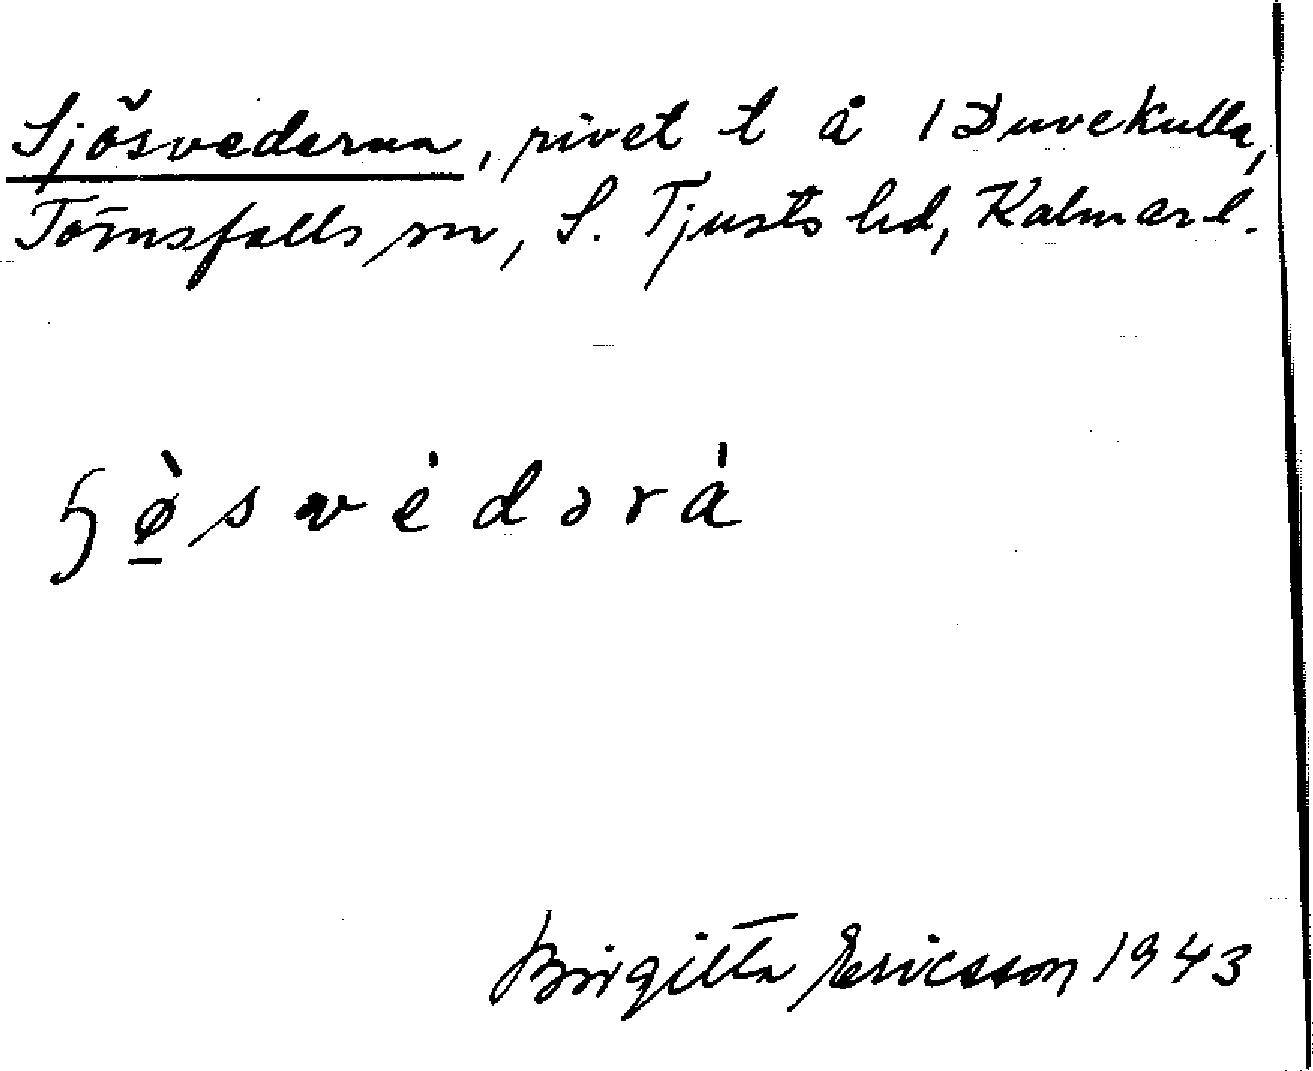 Sjösvederna, rivet t å 1 Duvekulla,
Törnsfalls sn, S. Tjusts hd, Kalmar l.
ɧø̠̀svédərá
Birgitta Ericsson 1943